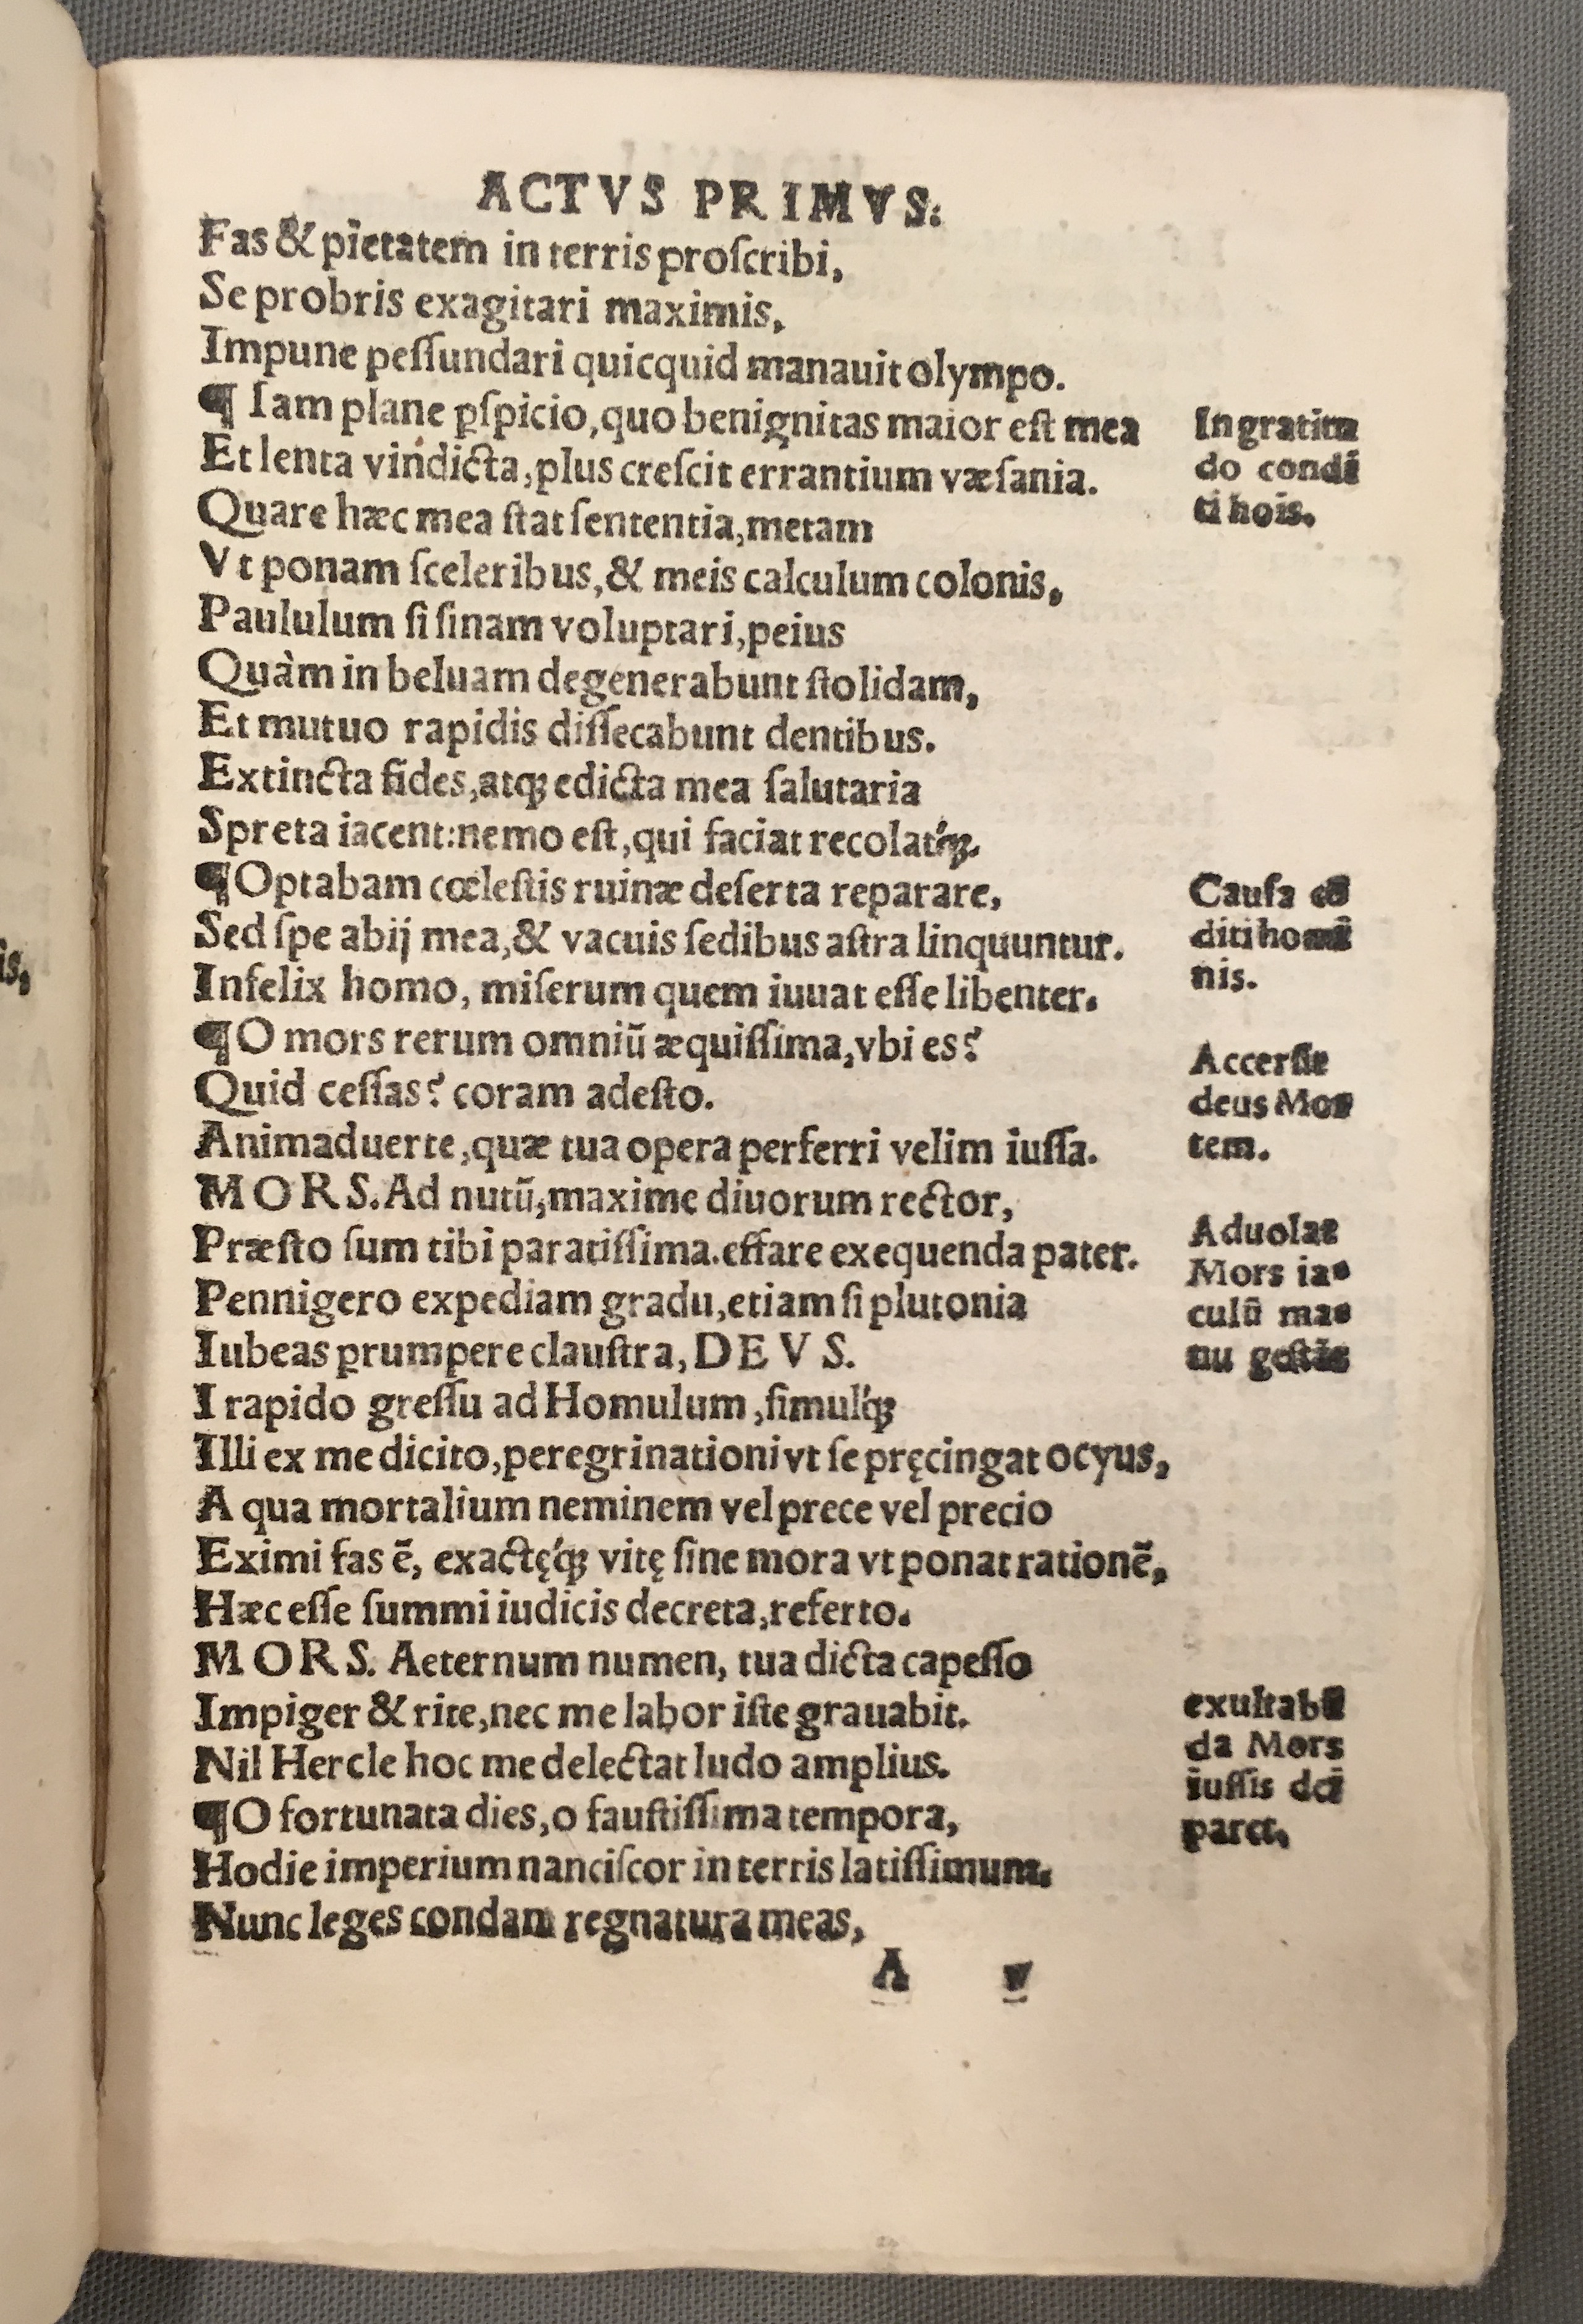 ACTVS PRIMVS:
Fas & pietatem in terris proſcribi,
Se probris exagitari maximis,
Impune peſſundari quicquid manauit olympo.
¶ Iam plane ꝑſpicio, quo benignitas maior eſt mea
Et lenta vindicta, plus creſcit errantium væſania.
Quare hæc mea ſtat ſententia, metam
Vt ponam ſceleribus, & meis calculum colonis,
Paululum ſi ſinam voluptari, peius
Quàm in beluam degenerabunt ſtolidam,
Et mutuo rapidis diſſecabunt dentibus.
Extincta fides, atqꝫ edicta mea ſalutaria
Spreta iacent: nemo eſt, qui faciat recolat́qꝫ.
¶ Optabam cœleſtis ruinæ deſerta reparare,
Sed ſpe abij mea, & vacuis ſedibus aſtra linquuntur.
Infelix homo, miſerum quem iuuat eſſe libenter.
¶ O mors rerum omniũ æquiſſima, vbi es?
Quid ceſſas? coram adeſto.
Animaduerte, quæ tua opera perferri velim iuſſa.
MORS. Ad nutũ, maxime diuorum rector,
Præſto ſum tibi paratiſſima. effare exequenda pater.
Pennigero expediam gradu, etiam ſi plutonia
Iubeas ꝑrumpere clauſtra, DEVS.
I rapido greſſu ad Homulum, ſimuĺqꝫ
Illi ex me dicito, peregrinationi vt ſe pręcingat ocyus,
A qua mortalium neminem vel prece vel precio
Eximi fas ẽ, exactę́qꝫ vitę ſine mora vt ponat rationẽ,
Hæc eſſe ſummi iudicis decreta, referto.
MORS. Aeternum numen, tua dicta capeſſo
Impiger & rite, nec me labor iſte grauabit.
Nil Hercle hoc me delectat ludo amplius.
¶ O fortunata dies, o fauſtiſſima tempora,
Hodie imperium nanciſcor in terris latiſſimum.
Nunc leges condam regnatura meas,
A v
Ingratitu
do condi
ti hoĩs.
Cauſa cõ
diti homi
nis.
Accerſit
deus Mor
tem.
Aduolat
Mors ia-
culũ ma-
nu geſtãs
exultabũ
da Mors
iuſſis dei
paret.
is,